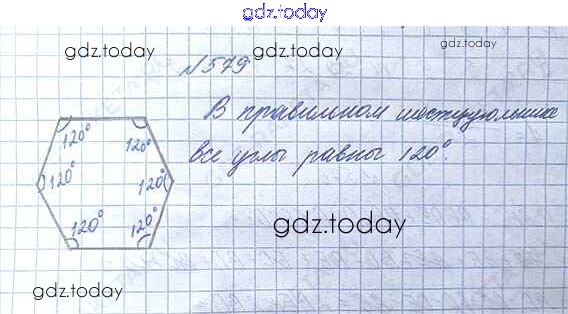 gdz.today
gdz.today gdz.today gdz.today
№579
В правильном шестиугольнике
все углы равны 120°.
120° 120°
120° 120°
120° 120°
gdz.today
gdz.today